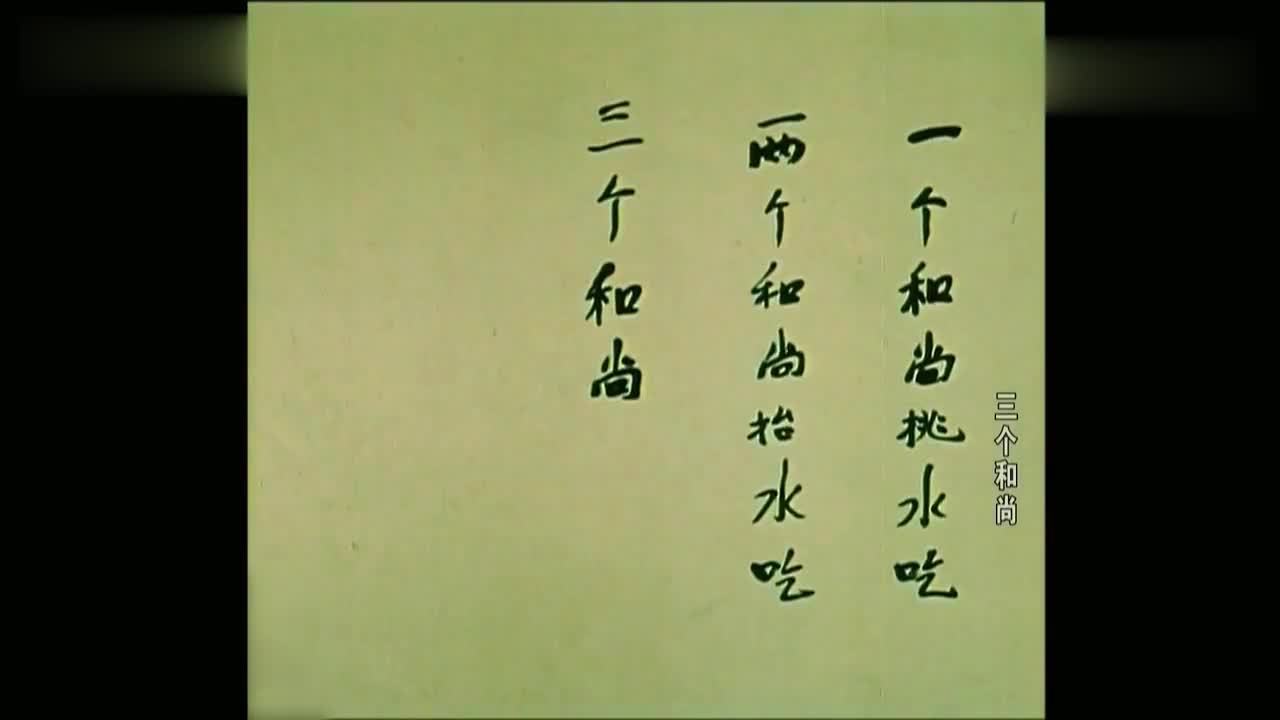 一个和尚挑水吃
两个和尚抬水吃
三个和尚
三个和尚